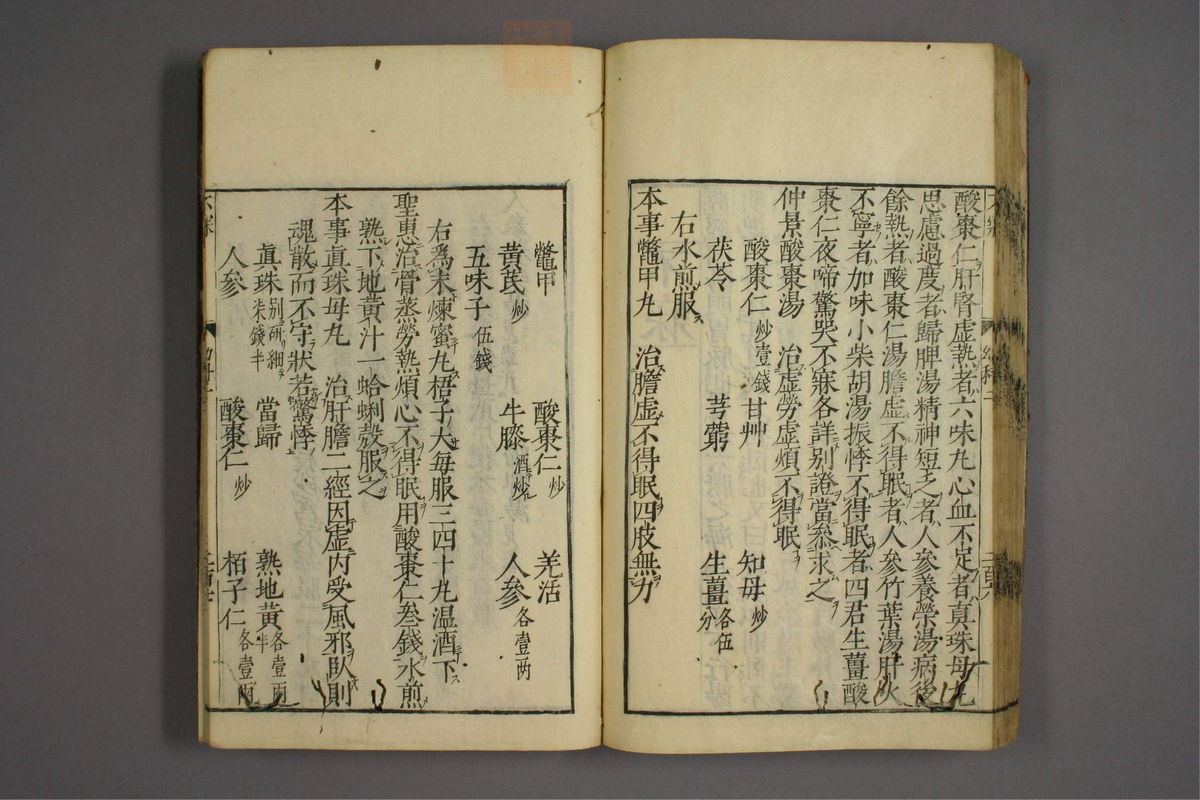 酸棗仁肝腎虚熱者六味丸心血不定者真珠母丸
思慮過度者歸脾湯精神短乏者人參養榮湯病後
餘熱者酸棗仁湯膽虚不得眠者人參竹葉湯肝火
不寧者加味小柴胡湯振悸不得眠者四君生薑酸
棗仁夜啼驚哭不寐各詳别證當參求之
仲景酸棗湯　治虚勞虚煩不得眠
酸棗仁炒壹錢　甘艸　知母炒
茯苓　芎藭　生薑各伍分
右水煎服
本事鼈甲丸　治膽虚不得眠四肢無力
鼈甲　酸棗仁炒　羌活
黄芪炒　牛膝酒炒　人參各壹两
五味子伍錢
右爲末煉蜜丸梧子大每服三四十丸温酒下
聖惠治骨蒸勞熱煩心不得眠用酸棗仁叁錢水煎
熟下地黄汁一蛤蜊殼服之
本事真珠母丸　治肝膽二經因虚内受風邪臥則
魂散而不守狀若驚悸
真珠别研細柒錢半　當歸　熟地黄各壹两半
人參　酸棗仁炒　栢子仁各壹两